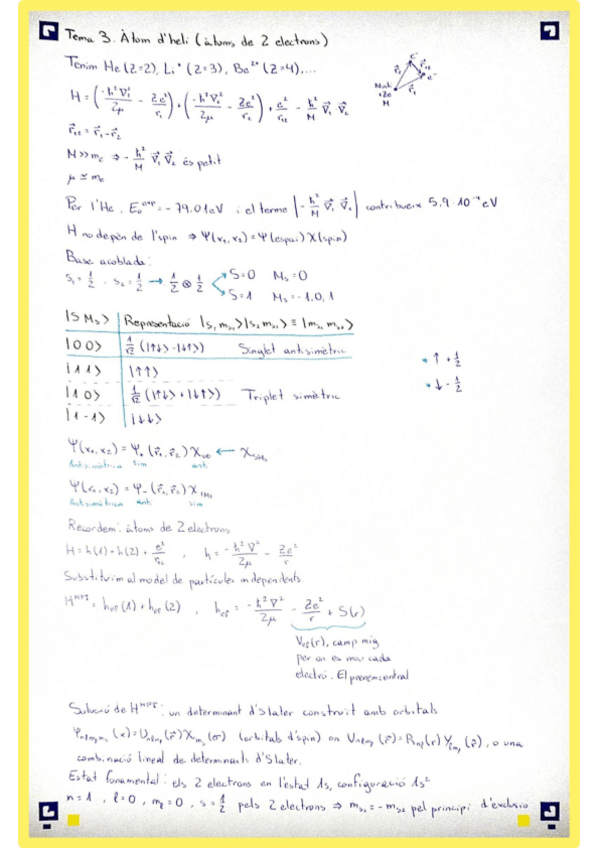 Tema 3. Àtom d'heli (àtoms de 2 electrons)
Tenim He (Z=2), Li⁺ (Z=3), Be²⁺ (Z=4),...
H = (-ħ²∇₁²/2μ - Ze²/r₁) + (-ħ²∇₂²/2μ - Ze²/r₂) + e²/r₁₂ - ħ²/M ∇⃗₁ ∇⃗₂
Nucli
+Ze
M
e⁻
e⁻
r⃗₁₂ = r⃗₁ - r⃗₂
M>>mₑ ⇒ - ħ²/M ∇⃗₁ ∇⃗₂ és petit
μ ≃ mₑ
Per l'He, E₀ᵉˣᵖ = -79.01eV i el terme |-ħ²/M ∇⃗₁ ∇⃗₂| contribueix
H no depèn de l'spin ⇒ Ψ(x₁,x₂) = Ψ(espai) X(spin)
Base acoblada:
S₁ = 1/2, S₂ = 1/2 → 1/2 ⊗ 1/2
S=0 Mₛ=0
S=1 Mₛ=-1,0,1
|S Mₛ> Representació |s₁ mₛ₁>|s₂ mₛ₂> ≡ |mₛ₁ mₛ₂>
|00> 1/√2 (|↑↓> - |↓↑>) Singlet antisimètric
|11> |↑↑>
|10> 1/√2 (|↑↓> + |↓↑>) Triplet simètric
|1-1> |↓↓>
↑ +1/2
↓ -1/2
Ψ(x₁,x₂) = Ψ₊(r⃗₁,r⃗₂) X₀₀ ← X_SMₛ
Antisimètrica sim anti
Ψ(x₁,x₂) = Ψ₋(r⃗₁,r⃗₂) X₁Mₛ
Antisimètrica anti sim
Recordem: àtoms de 2 electrons
H = h(1) + h(2) + e²/r₁₂ , h = -ħ²∇²/2μ - Ze²/r
Substituïm al model de partícules independents
Hᴹᴾᴵ = h_ef(1) + h_ef(2) , h_ef = -ħ²∇²/2μ - Ze²/r + S(r)
V_ef(r), camp mig
per on es mou cada
electró. El prenem central
Solució de Hᴹᴾᴵ: un determinant d'Slater construït amb orbitals
φ_nlmₗmₛ(x) = U_nlmₗ(r⃗) X_mₛ(σ) (orbitals d'spin) on U_nlmₗ(r⃗) = R_nl(r) Y_lmₗ(r̂), o una
combinació lineal de determinants d'Slater.
Estat fonamental: els 2 electrons en l'estat 1s, configuració 1s²
n=1, l=0, mₗ=0, s=1/2 pels 2 electrons ⇒ mₛ₁ = -mₛ₂ pel principi d'exclusió